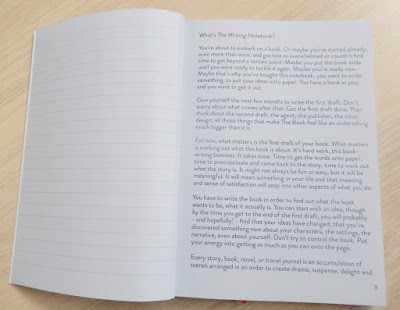 What's The Writing Notebook?
You're about to embark on a book. Or maybe you've started already,
even more than once, and got lost or overwhelmed or couldn't find
time to get beyond a certain point. Maybe you put the book aside
until you were ready to tackle it again. Maybe you're ready now.
Maybe that's why you've bought this notebook: you want to write
something, to put your ideas onto paper. You have a book in you,
and you want to get it out.
Give yourself the next few months to write the first draft. Don't
worry about what comes after that. Get the first draft done. Then
think about the second draft, the agent, the publisher, the cover
design; all those things that make The Book feel like an undertaking
much bigger than it is.
For now, what matters is the first draft of your book. What matters
is working out what this book is about. It's hard work, this book-
writing business. It takes time. Time to get the words onto paper,
time to procrastinate and come back to the story, time to work out
what the story is. It might not always be fun or easy, but it will be
meaningful. It will mean something in your life and that meaning
and sense of satisfaction will seep into other aspects of what you do.
You have to write the book in order to find out what the book
wants to be, what it actually is. You can start with an idea, though
by the time you get to the end of the first draft, you will probably
- and hopefully! - find that your ideas have changed; that you've
discovered something new about your characters, the settings, the
narrative, even about yourself. Don't try to control the book. Put
your energy into getting as much as you can onto the page.
Every story, book, novel, or travel journal is an accumulation of
scenes arranged in an order to create drama, suspense, delight and
3